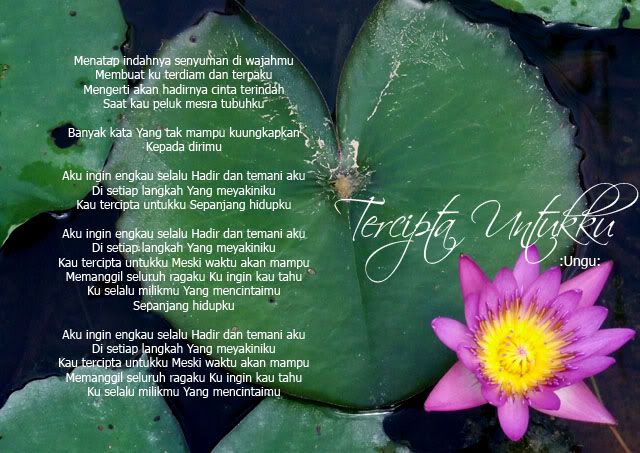 Menatap indahnya senyuman di wajahmu
Membuat ku terdiam dan terpaku
Mengerti akan hadirnya cinta terindah
Saat kau peluk mesra tubuhku
Banyak kata Yang tak mampu kuungkapkan
Kepada dirimu
Aku ingin engkau selalu Hadir dan temani aku
Di setiap langkah Yang meyakiniku
Kau tercipta untukku Sepanjang hidupku
Aku ingin engkau selalu Hadir dan temani aku
Di setiap langkah Yang meyakiniku
Kau tercipta untukku Meski waktu akan mampu
Memanggil seluruh ragaku Ku ingin kau tahu
Ku selalu milikmu Yang mencintaimu
Sepanjang hidupku
Aku ingin engkau selalu Hadir dan temani aku
Di setiap langkah Yang meyakiniku
Kau tercipta untukku Meski waktu akan mampu
Memanggil seluruh ragaku Ku ingin kau tahu
Ku selalu milikmu Yang mencintaimu
Tercipta Untukku
:Ungu: